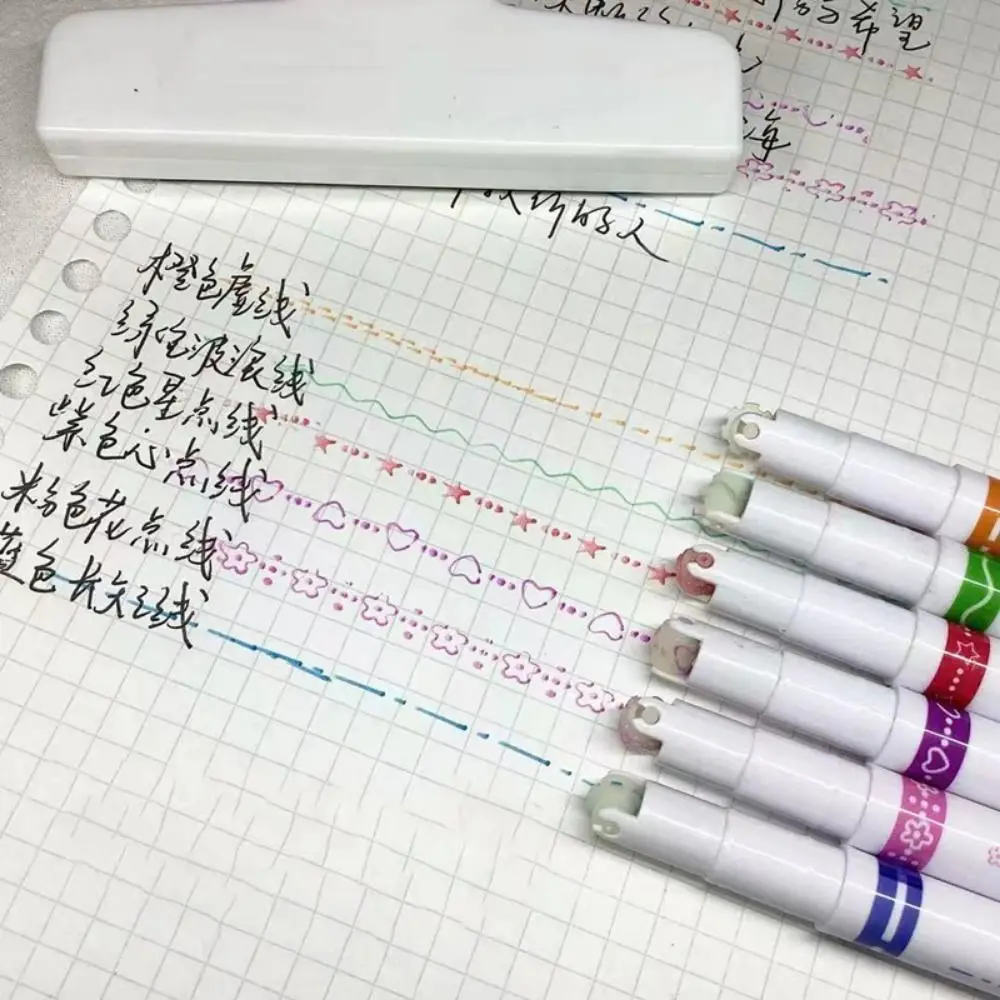 希望
海
的人
橙色虚线
绿色波浪线
红色星点线
紫色心点线
粉色花点线
蓝色长矢线